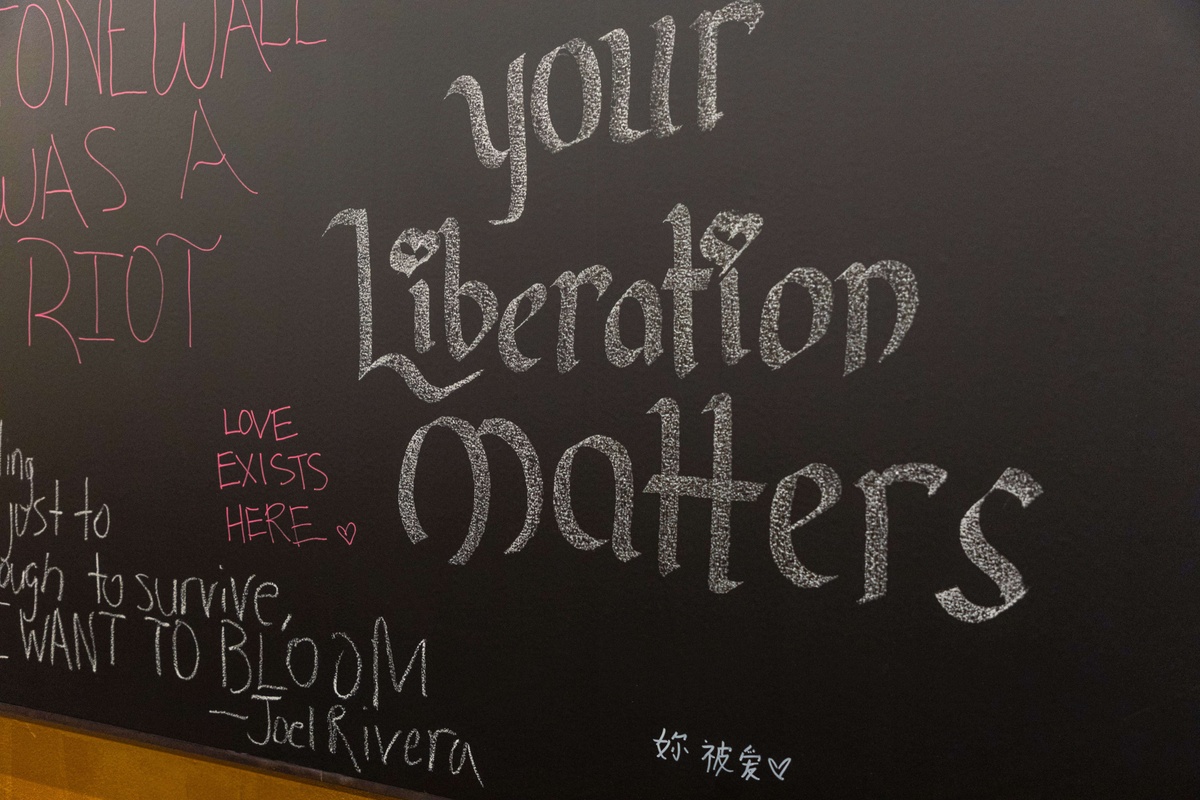 TONEWALL
WAS A
RIOT
your
Liberation
Matters
LOVE
EXISTS
HERE ♡
ling
just to
ough to survive,
I WANT TO BLOOM
-Joel Rivera
妳 被 爱♡